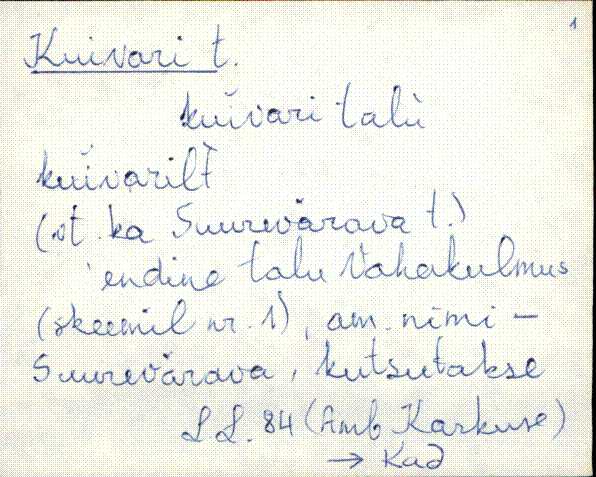 1
Kuivari t.
kuivari talu
kuivarilt
(vt. ka Suurevärava t.)
endine talu Vahakulmus
(skeemil nr. 1), am. nimi –
Suurevärava, kutsutakse
L L. 84 (Amb Karkuse)
→ Kad